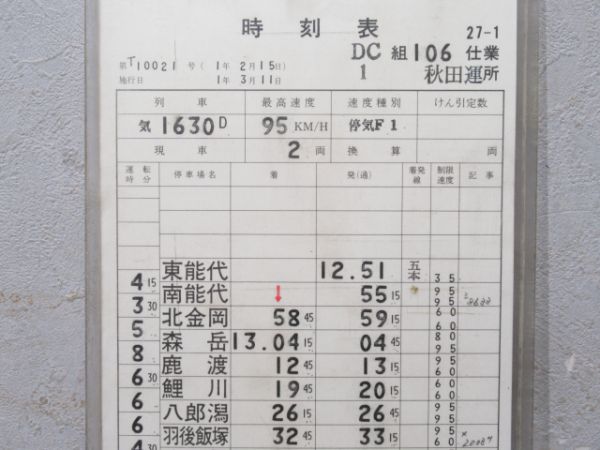 時刻表
27-1
DC組106仕業
第T10021号(1年2月15日)
1 秋田運所
施行日 1年3月11日
列車 最高速度 速度種別 けん引定数
気1630D 95KM/H 停気F1
現車 2両 換算 両
運転時分 停車場名 着 発(通) 着発線 制限速度 記事
東能代 12.51 五本 35
4 15
南能代 ↓ 55 15 95 95
3 30
北金岡 58 45 59 15 60
5
森岳 13.04 15 04 45 80 95
8
鹿渡 12 45 13 15 60 95
6 30
鯉川 19 45 20 15 60 95
6
八郎潟 26 15 26 45 60 95
6
羽後飯塚 32 45 33 15 95 60
4 30